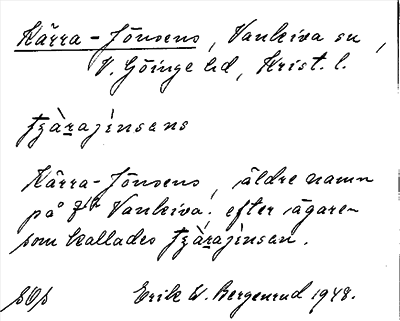 Kärra-Jönsens, Vankiva sn,
V. Göinge hd, Krist. l.
tʃàrajinsans
Kärra-Jönsens, äldre namn
på Vankiva. efter ägaren
som kallades tʃàrajinsan.
Erik W. Bergenrud 1948.